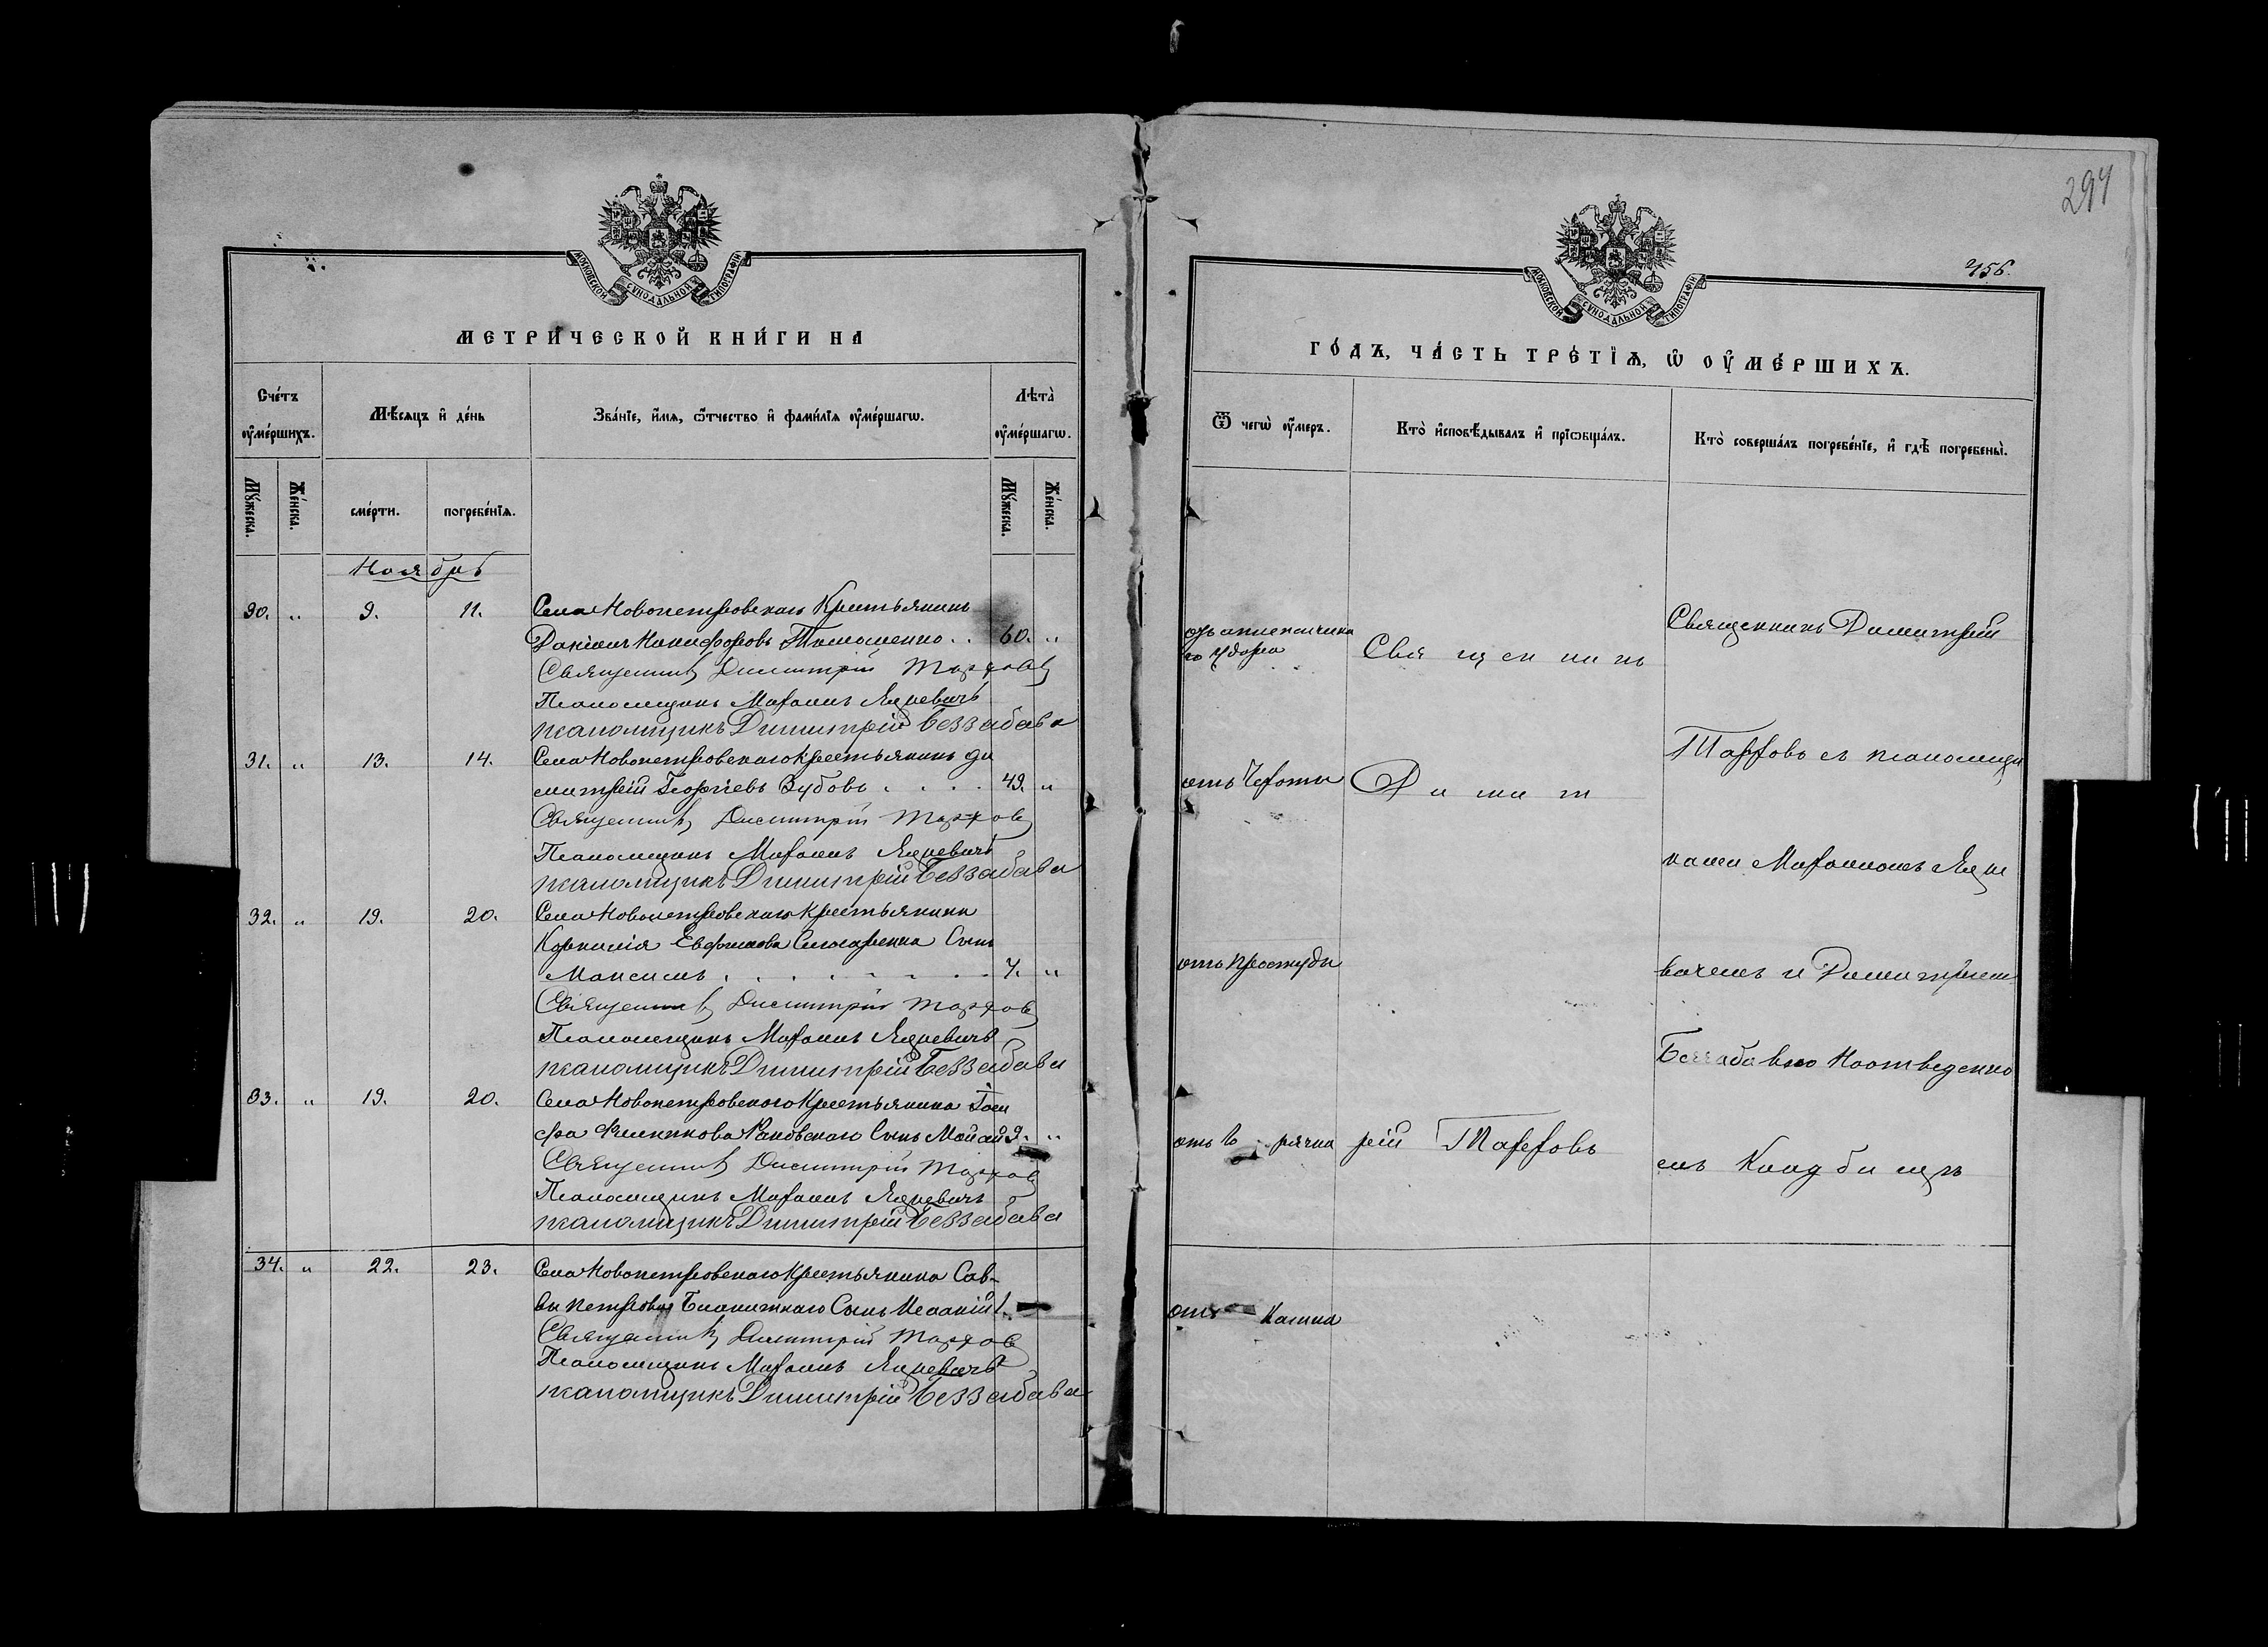 МОСКОВСКОЙ СѴНОДАЛЬНОЙ ТИПОГРАФІИ
МЕТРИ́ЧЕСКОЙ КНИ́ГИ НА
Сче́тъ ᲂу҆ме́ршихъ.
Мѣ́сяцъ и҆ де́нь
Зва́нїе, и҆́мѧ, ѻ҆́тчество и҆ фами́лїѧ ᲂу҆ме́ршагѡ.
Лѣта̀ ᲂу҆ме́ршагѡ.
Мꙋ́жеска.
Же́нска.
сме́рти.
погребе́нїѧ.
Мꙋ́жеска.
Же́нска.
Ноябрь
30. " 9. 11. Села Новопетровскаго Крестьянинъ
Даніилъ Никифоровъ Тимошенко . . 60. "
Священникъ Димитрій
Псаломщикъ Яцкевичъ
псаломщикъ Димитрій Беззабава
31. " 13. 14. Села Новопетровскаго крестьянинъ Ди
митрій Георгіевъ Зубовъ . . . . 49. "
Священникъ Димитрій
Псаломщикъ Яцкевичъ
псаломщикъ Димитрій Беззабава
32. " 19. 20. Села Новопетровскаго крестьянина
Корнилія Слюсаренка Сынъ
Максимъ . . . . . . . "
Священникъ Димитрій
Псаломщикъ Яцкевичъ
псаломщикъ Димитрій Беззабава
33. " 19. 20. Села Новопетровскаго Крестьянина Іоси
фа Филиппова Раковскаго Сынъ 9. "
Священникъ Димитрій
Псаломщикъ Яцкевичъ
псаломщикъ Димитрій Беззабава
34. " 22. 23. Села Новопетровскаго Крестьянина Сав-
вы Петрова Сынъ 1.
Священникъ Димитрій
Псаломщикъ Яцкевичъ
псаломщикъ Димитрій Беззабава
294
456.
МОСКОВСКОЙ СѴНОДАЛЬНОЙ ТИПОГРАФІИ
ГО́ДЪ, ЧА́СТЬ ТРЕ́ТЇѦ, Ѡ҆ ОУ҆МЕ́РШИХЪ.
Ѿ чегѡ̀ ᲂу҆́меръ.
Кто̀ и҆сповѣ́дывалъ и҆ прїѡбща́лъ.
Кто̀ соверша́лъ погребе́нїе, и҆ гдѣ̀ погребены̀.
отъ апоплексическа
го удара
Священникъ
Священникъ Димитрій
отъ Чахотки
Димит
съ псаломщи
ками Яцке
отъ простуды
вичемъ и Димитріемъ
Беззабавою На отведенно
отъ горячки
рій
мъ Кладбищѣ
отъ Кашля